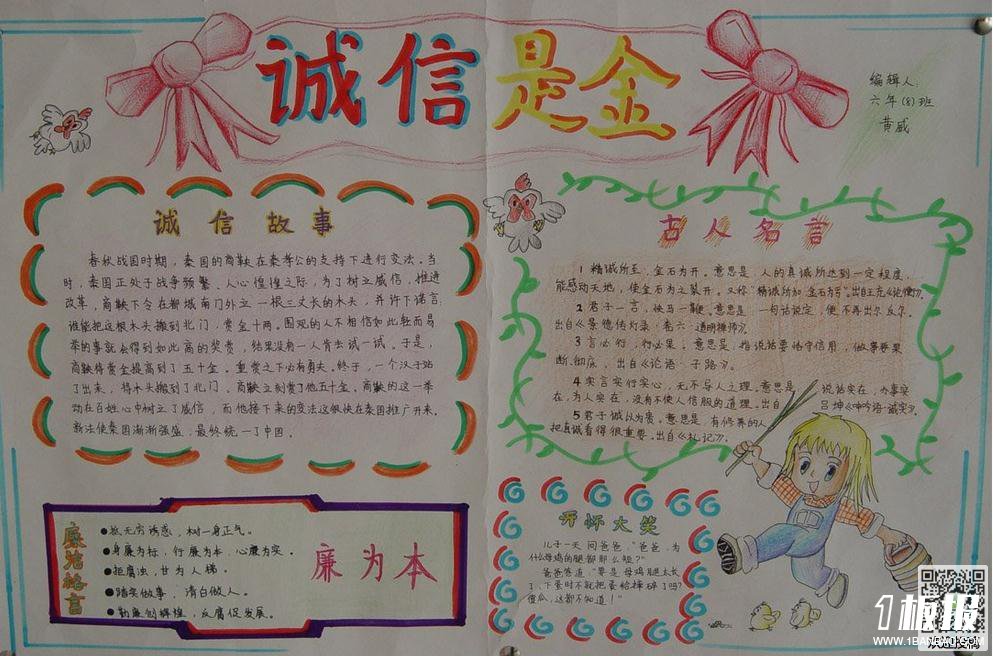 诚信是金
编辑人：
六年(8)班
黄威
诚信故事
春秋战国时期，秦国的商鞅在秦孝公的支持下进行变法。当
时，秦国正处于战争频繁、人心惶惶之际，为了树立威信，推进
改革，商鞅下令在都城南门外立一根三丈长的木头，并许下诺言：
谁能把这根木头搬到北门，赏金十两。围观的人不相信如此轻而易
举的事就会得到如此高的奖赏，结果没有一人肯去试一试。于是，
商鞅将赏金提高到了五十金。重赏之下必有勇夫。终于，一个汉子站
了出来，将木头搬到了北门，商鞅立刻赏了他五十金。商鞅的这一举
动在百姓心中树立了威信，而他接下来的变法这很快在秦国推广开来。
新法使秦国渐渐强盛，最终统一了中国。
古人名言
1 精诚所至，金石为开。意思是，人的真诚所达到一定程度，
能感动天地，使金石为之裂开。又称"精诚所加，金石为亏"。出自王充《论衡》。
2 君子一言，快马一鞭。意思是，一句话说定，便不再出尔反尔。
出自《景德传灯录·卷六·道明禅师》。
3 言必行，行必果。意思是，指说话要恪守信用，做事要果
断、彻底，出自《论语·子路》。
4 实言实行实心，无不孚人之理。意思是，说话实在，办事实
在，为人实在，没有不使人信服的道理。出自吕坤《呻吟语·诚实》。
5 君子诚以为贵。意思是，有修养的人
把真诚看得很重要。出自《礼记》。
廉洁格言
●抵无穷诱惑，树一身正气。
●身廉为标，行廉为本，心廉为实。
●拒腐蚀，甘为人梯。
●踏实做事，清白做人。
●勤廉创辉煌，反腐促发展。
廉为本
开怀大笑
儿子一天问爸爸，"爸爸，为
什么母鸡的腿都那么短？"
爸爸答道："要是母鸡腿太长
了，下蛋时不就把蛋给摔碎了吗？
傻瓜，这都不知道！"
1板报
WWW.1BANBAO.COM
欢迎投稿